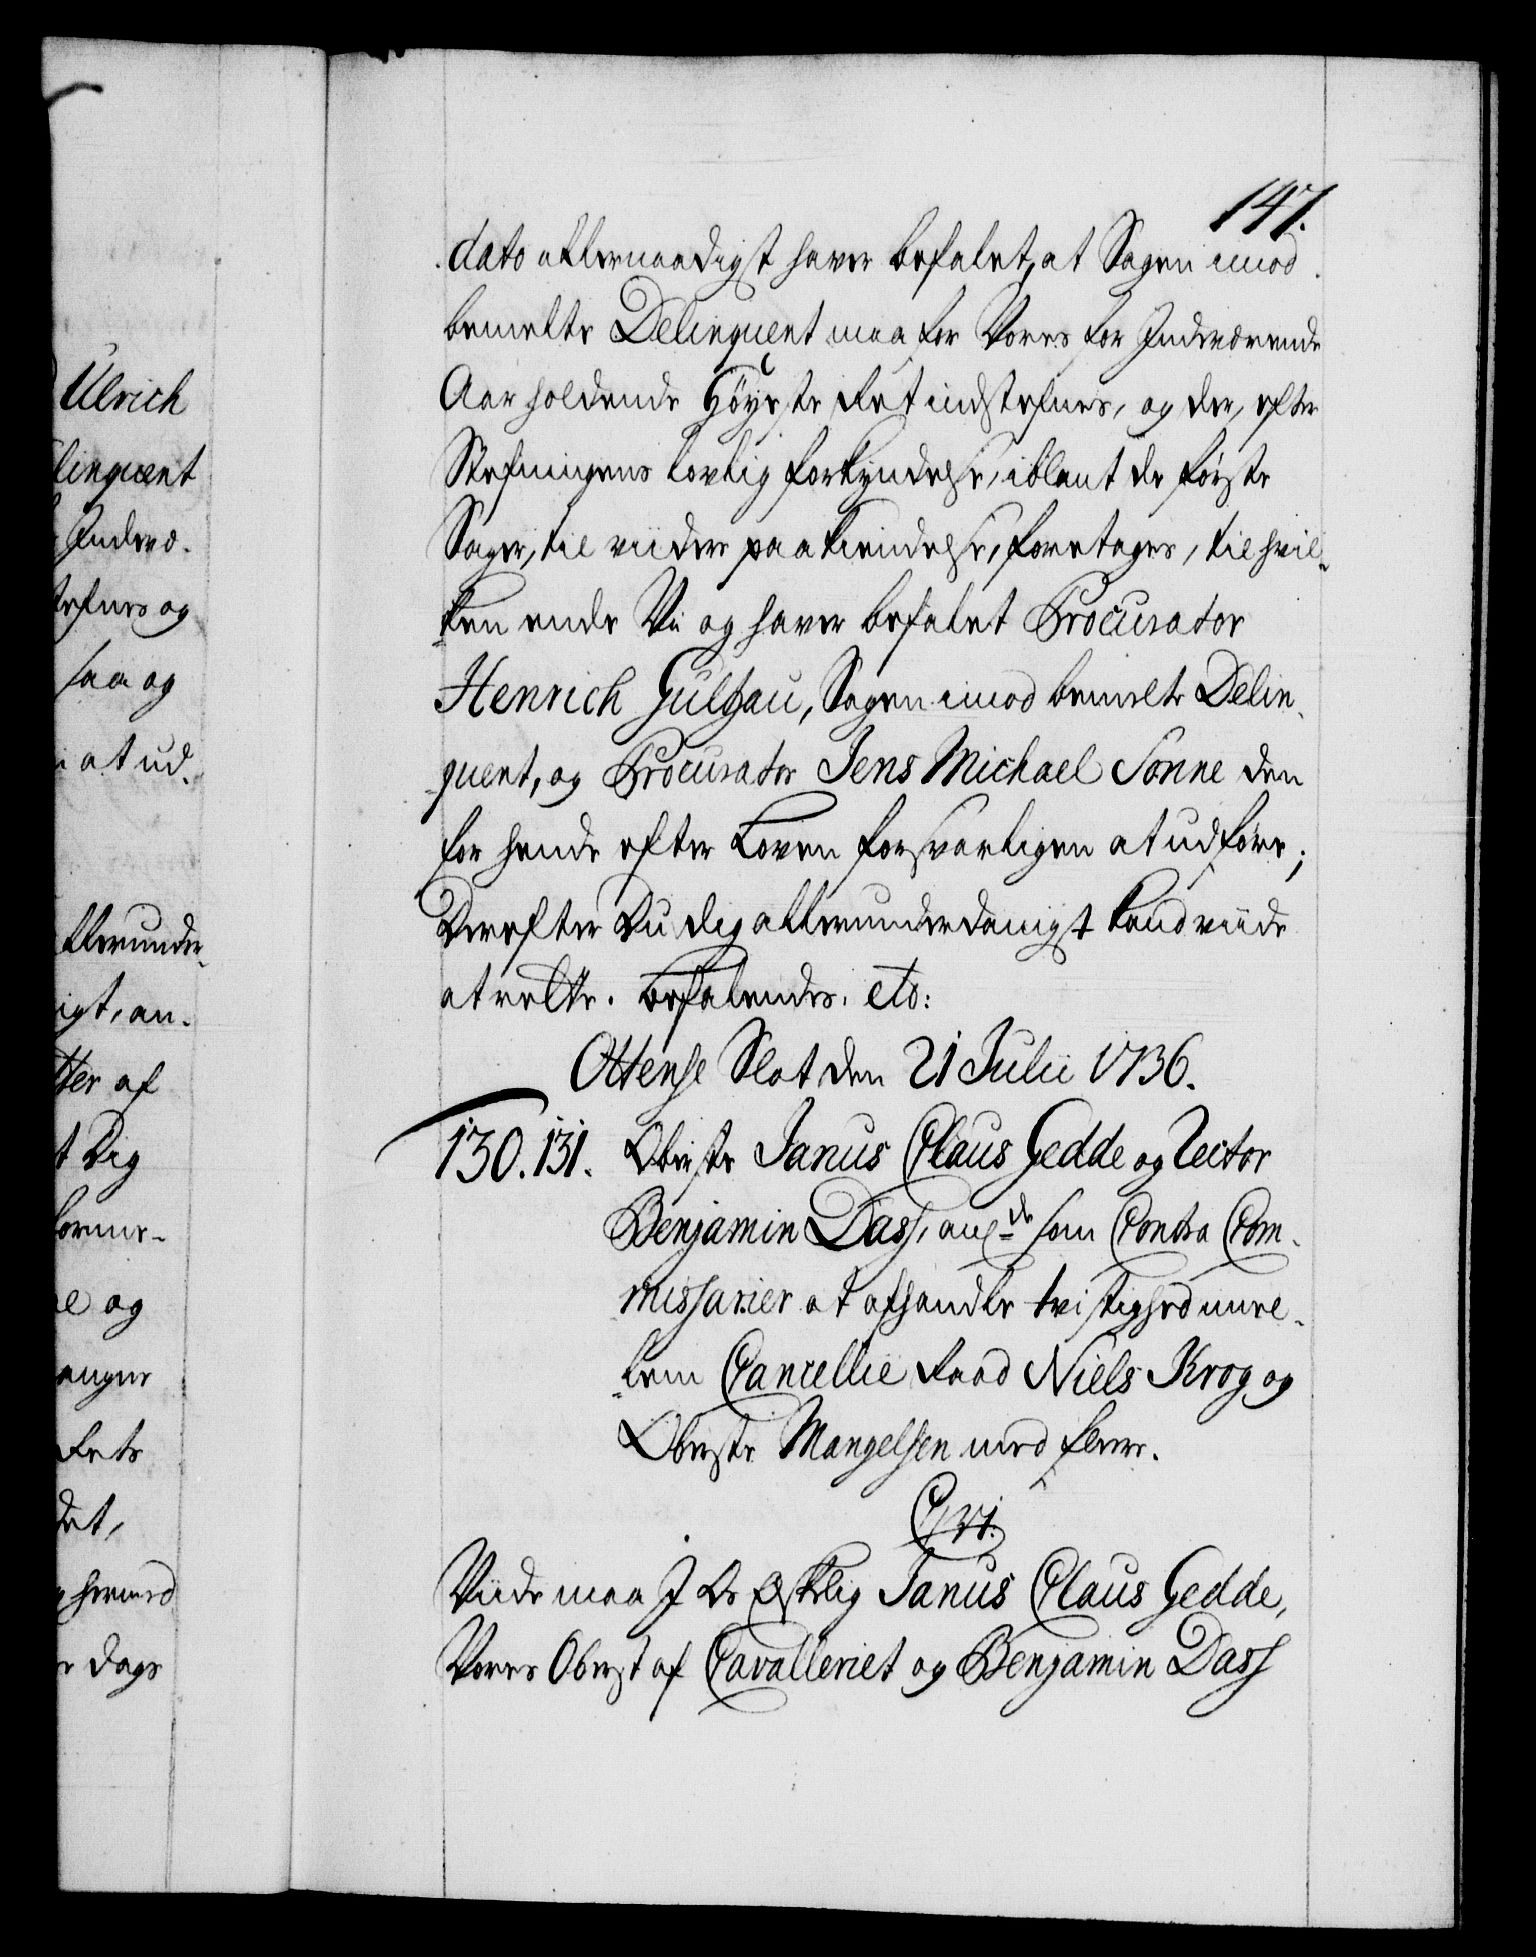 147.
dato allernaadigst haver befalet, at Sagen imod
bemelte Delinquent maa for Vores for Indeværende
Aar holdende Höyeste Ret indstefnes, og der, efter
Stefningens lovlig forkyndelse, iblant de første
Sager, til viidere paakiendelse, foretages, til hvil-
ken ende Vi og haver befalet Procurator
Henrich Gultzau, Sagen imod bemelte Delin-
quent, og Procurator Jens Michael Sonne den
for hende efter Loven forsvarligen at udføre;
Derefter Du dig allerunderdanigst kand viide
at rette. Befalendes. etc:
Ottense Slot den 21 Julii 1736.
130. 131. Oberste Janus Claus Gedde og Rector
Benjamin Dass, ans:de som Contra Com-
missarier at afhandle tvistighed imel-
lem Cancellie Raad Niels Krog og
Oberste Mangelsen med flere.
C 6ti.
Viide maa I Os Elskelig Janus Claus Gedde,
Vores Oberst af Cavalleriet og Benjamin Dass
Ulrich
linquent
Indevæ-
tefnes og
saa og
at ud-
llerunder-
igt, an-
tter af
t Dig
og
anger
Rets
det,
hermed
dags